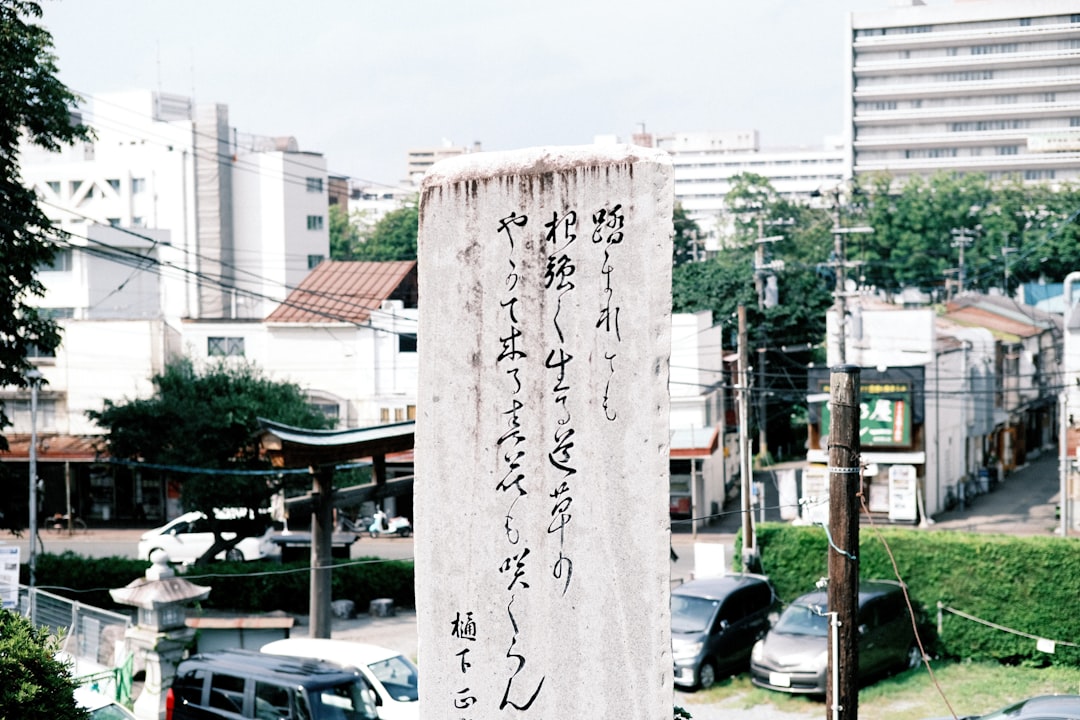 踏まれても
根強く生きる道草の
やがて来る春花も咲くらん
樋下正